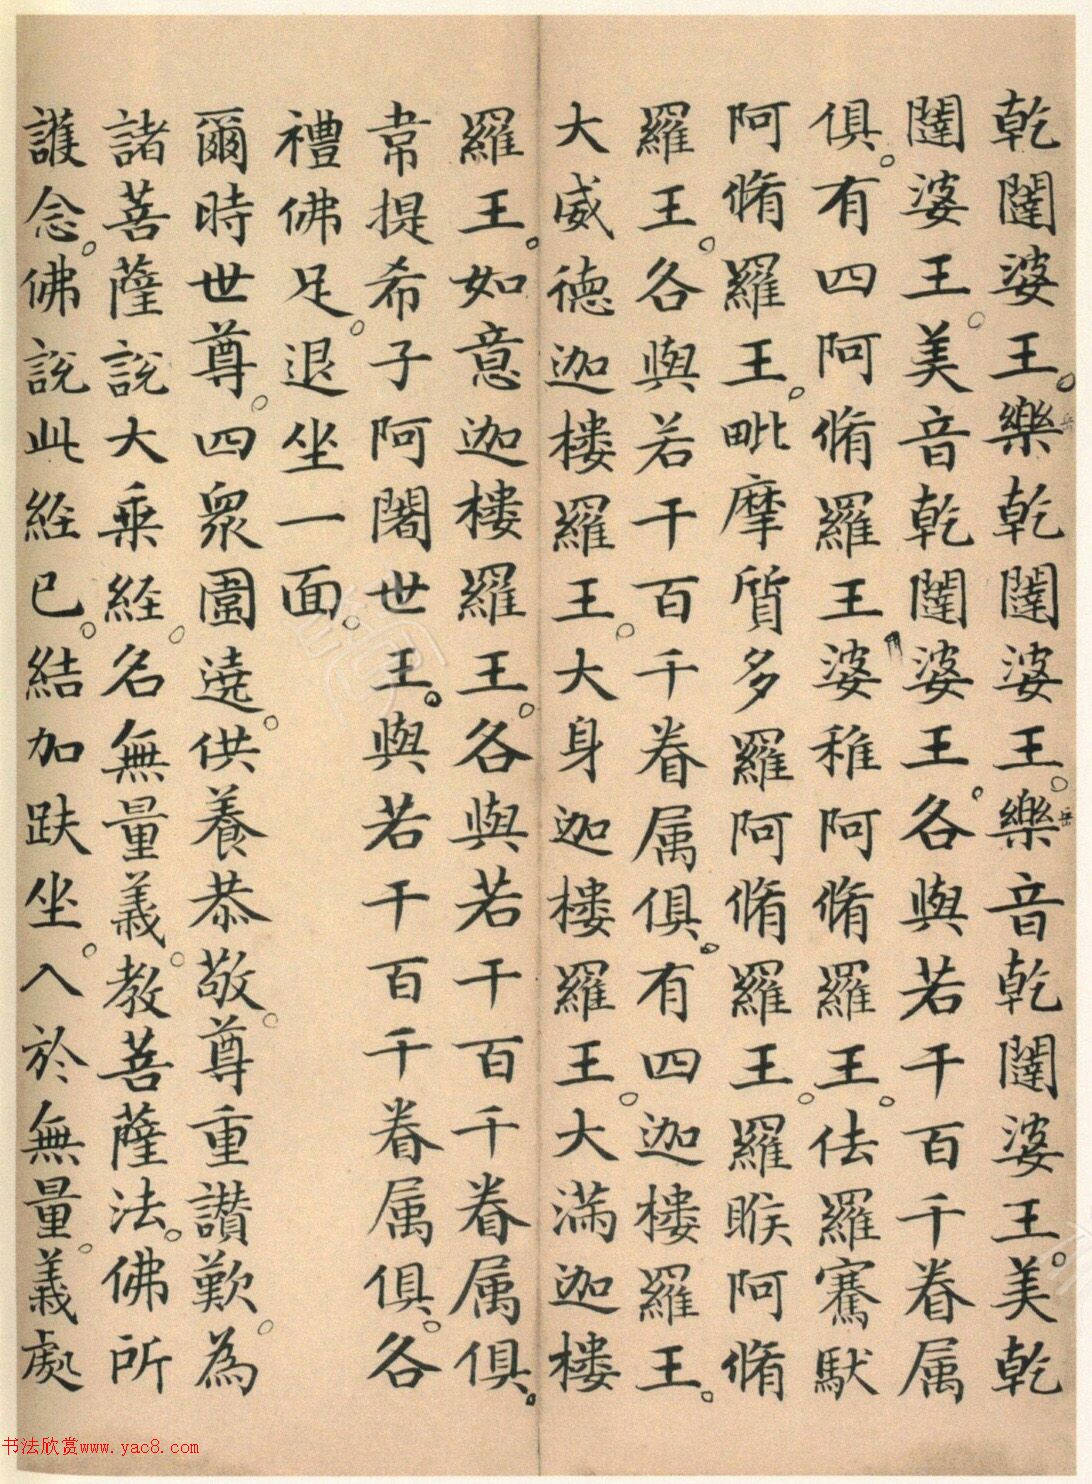 乾闥婆王。樂乾闥婆王。樂音乾闥婆王。美乾
闥婆王。美音乾闥婆王。各與若干百千眷属
俱。有四阿脩羅王婆稚阿脩羅王。佉羅騫馱
阿脩羅王。毗摩質多羅阿脩羅王。羅睺阿脩
羅王。各與若干百千眷属俱。有四迦樓羅王。
大威德迦樓羅王。大身迦樓羅王。大滿迦樓
羅王。如意迦樓羅王。各與若干百千眷属俱。
韋提希子阿闍世王。與若干百千眷属俱。各
禮佛足。退坐一面。
爾時世尊。四衆圍遶。供養恭敬。尊重讃歎。為
諸菩薩說大乗經。名無量義。教菩薩法。佛所
護念。佛說此經已。結加趺坐。入於無量。義處
书法欣赏www.yac8.com